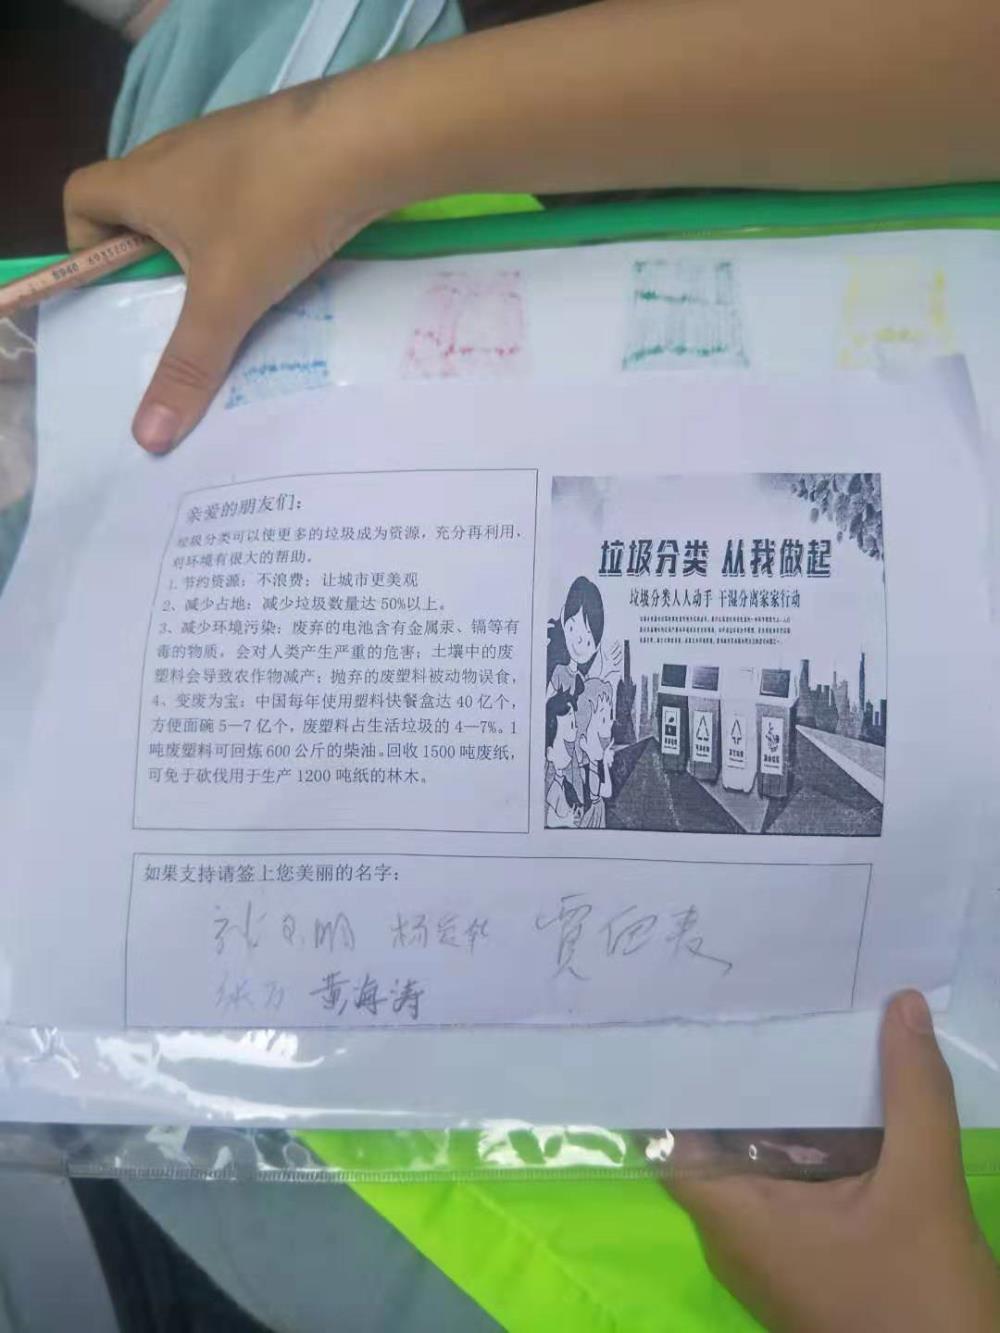 亲爱的朋友们：
垃圾分类可以使更多的垃圾成为资源，充分再利用、
对环境有很大的帮助。
1.节约资源；不浪费；让城市更美观
2、减少占地：减少垃圾数量达50%以上。
3、减少环境污染：废弃的电池含有金属汞、镉等有
毒的物质。会对人类产生严重的危害；土壤中的废
塑料会导致农作物减产；抛弃的废塑料被动物误食，
4、变废为宝：中国每年使用塑料快餐盒达40亿个，
方便面碗5—7亿个，废塑料占生活垃圾的4—7%。1
吨废塑料可回炼600公斤的柴油。回收1500吨废纸，
可免于砍伐用于生产1200吨纸的林木。
垃圾分类 从我做起
垃圾分类人人动手 干湿分离家家行动
如果支持请签上您美丽的名字：
张万 黄海涛